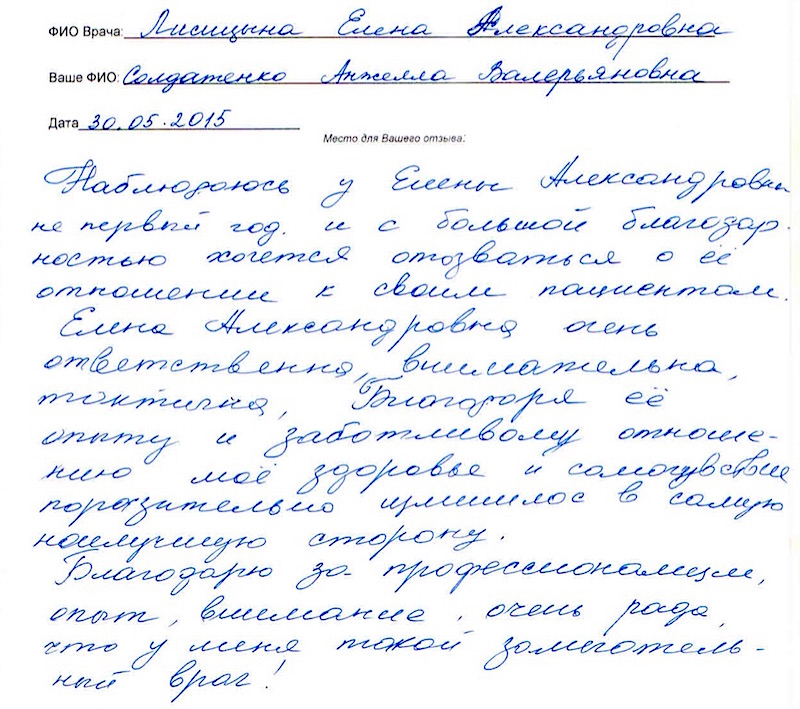 ФИО Врача: Лисицына Елена Александровна
Ваше ФИО: Солдатенко Анжелла Валерьяновна
Дата 30.05.2015
Место для Вашего отзыва:
Наблюдаюсь у Елены Александровны
не первый год. и с большой благодар-
ностью хочется отозваться о её
отношении к своим пациентам.
Елена Александровна очень
ответственна, внимательна,
тактична, Благодаря её
опыту и заботливому отноше-
нию моё здоровье и самочувствие
поразительно изменилос в самую
наилучшую сторону.
Благодарю за профессионализм,
опыт, внимание, очень рада,
что у меня такой замечатель-
ный врач!